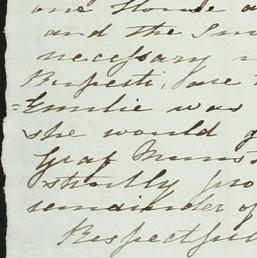 one House a
and the Sm
necessary
Respecti, are
Emilie was
she would g
Graf Muns
strictly pro
remainder of
Respectful